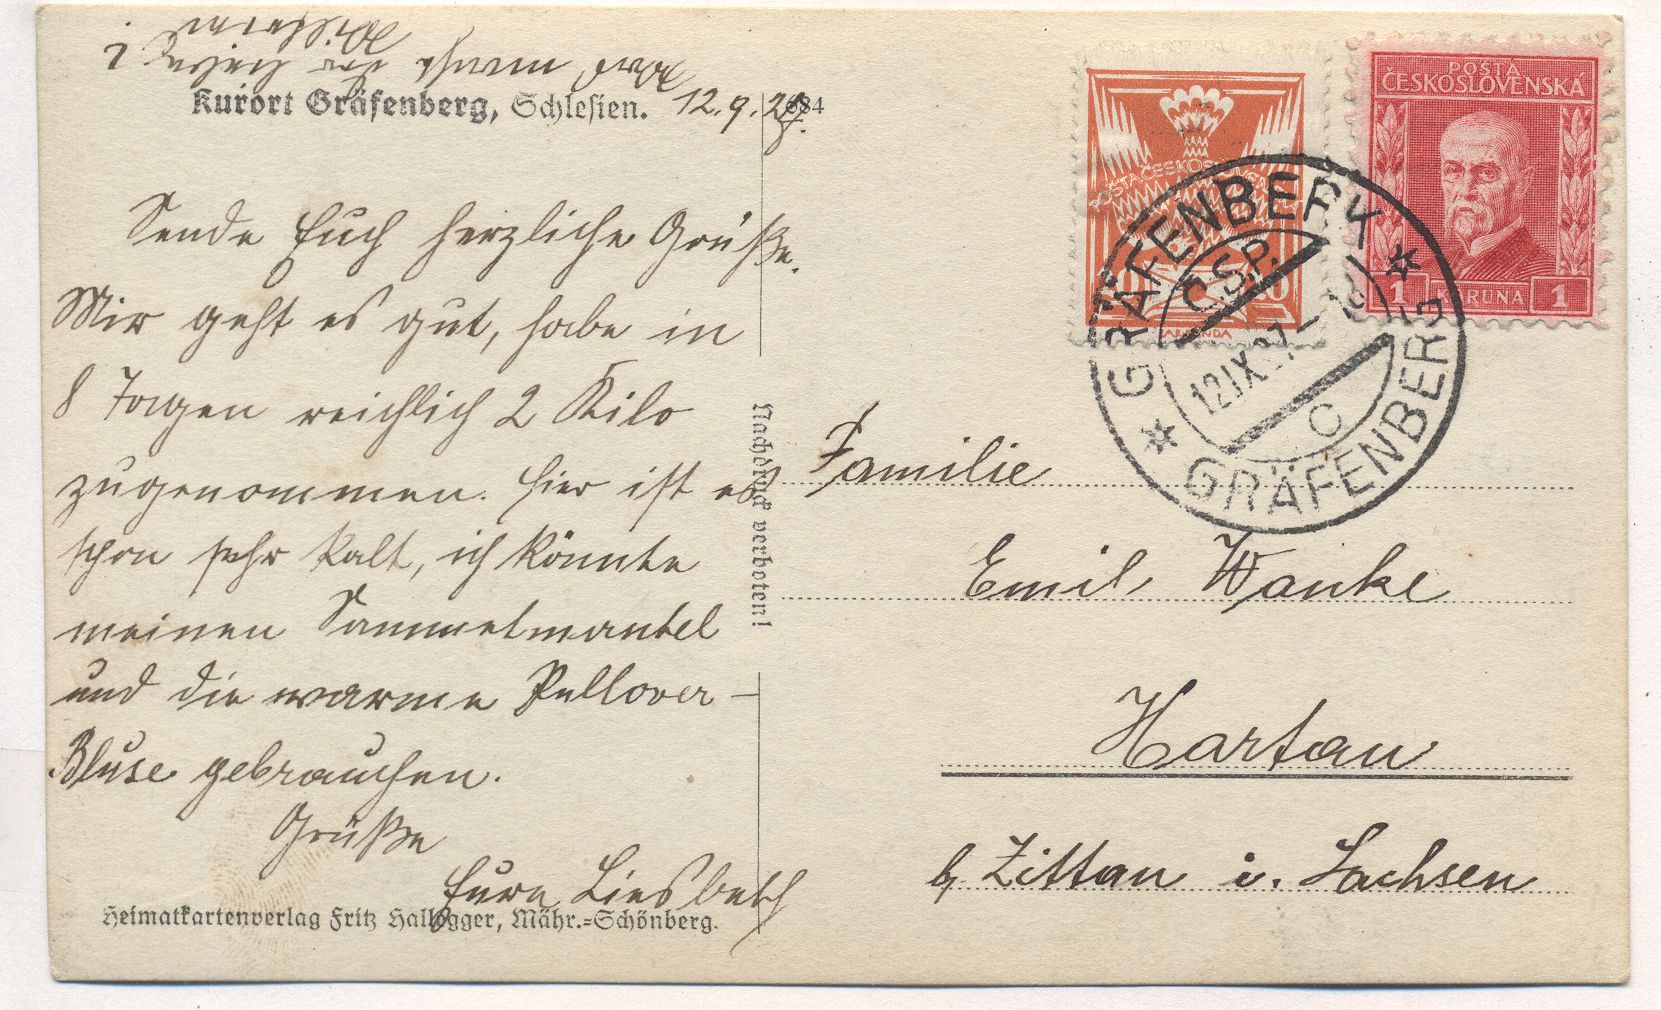 Kurort Gräfenberg, Schlesien. 12.9.27.
684
Sende Euch herzliche Grüße.
Mir geht es gut, habe in
8 Tagen reichlich 2 Kilo
zugenommen. Hier ist es
schon sehr kalt, ich könnte
meinen Sammetmantel
und die warme Pullover-
Bluse gebrauchen.
Grüße
Eure Liesbeth
Heimatkartenverlag Fritz Hallegger, Mähr.-Schönberg.
Nachdruck verboten!
POŠTA ČESKOSLOVENSKÁ
POŠTA
ČESKOSLOVENSKÁ
1 KORUNA 1
GRÄFENBERK
Č.S.P.
12.IX.27
C
GRÄFENBERG
Familie
Emil Wanke
Hartau
b/ Zittau i. Sachsen